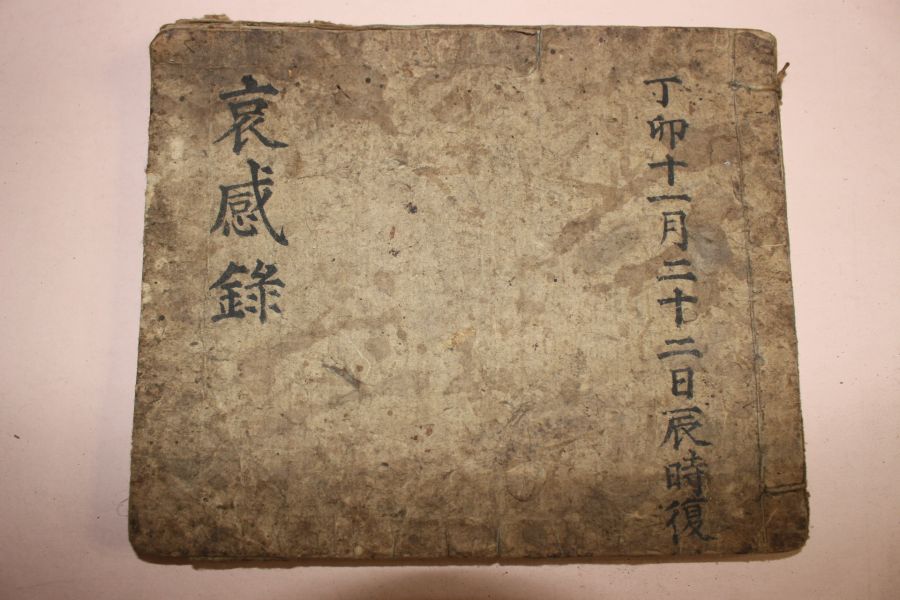 丁卯十一月二十二日辰時復
哀感錄